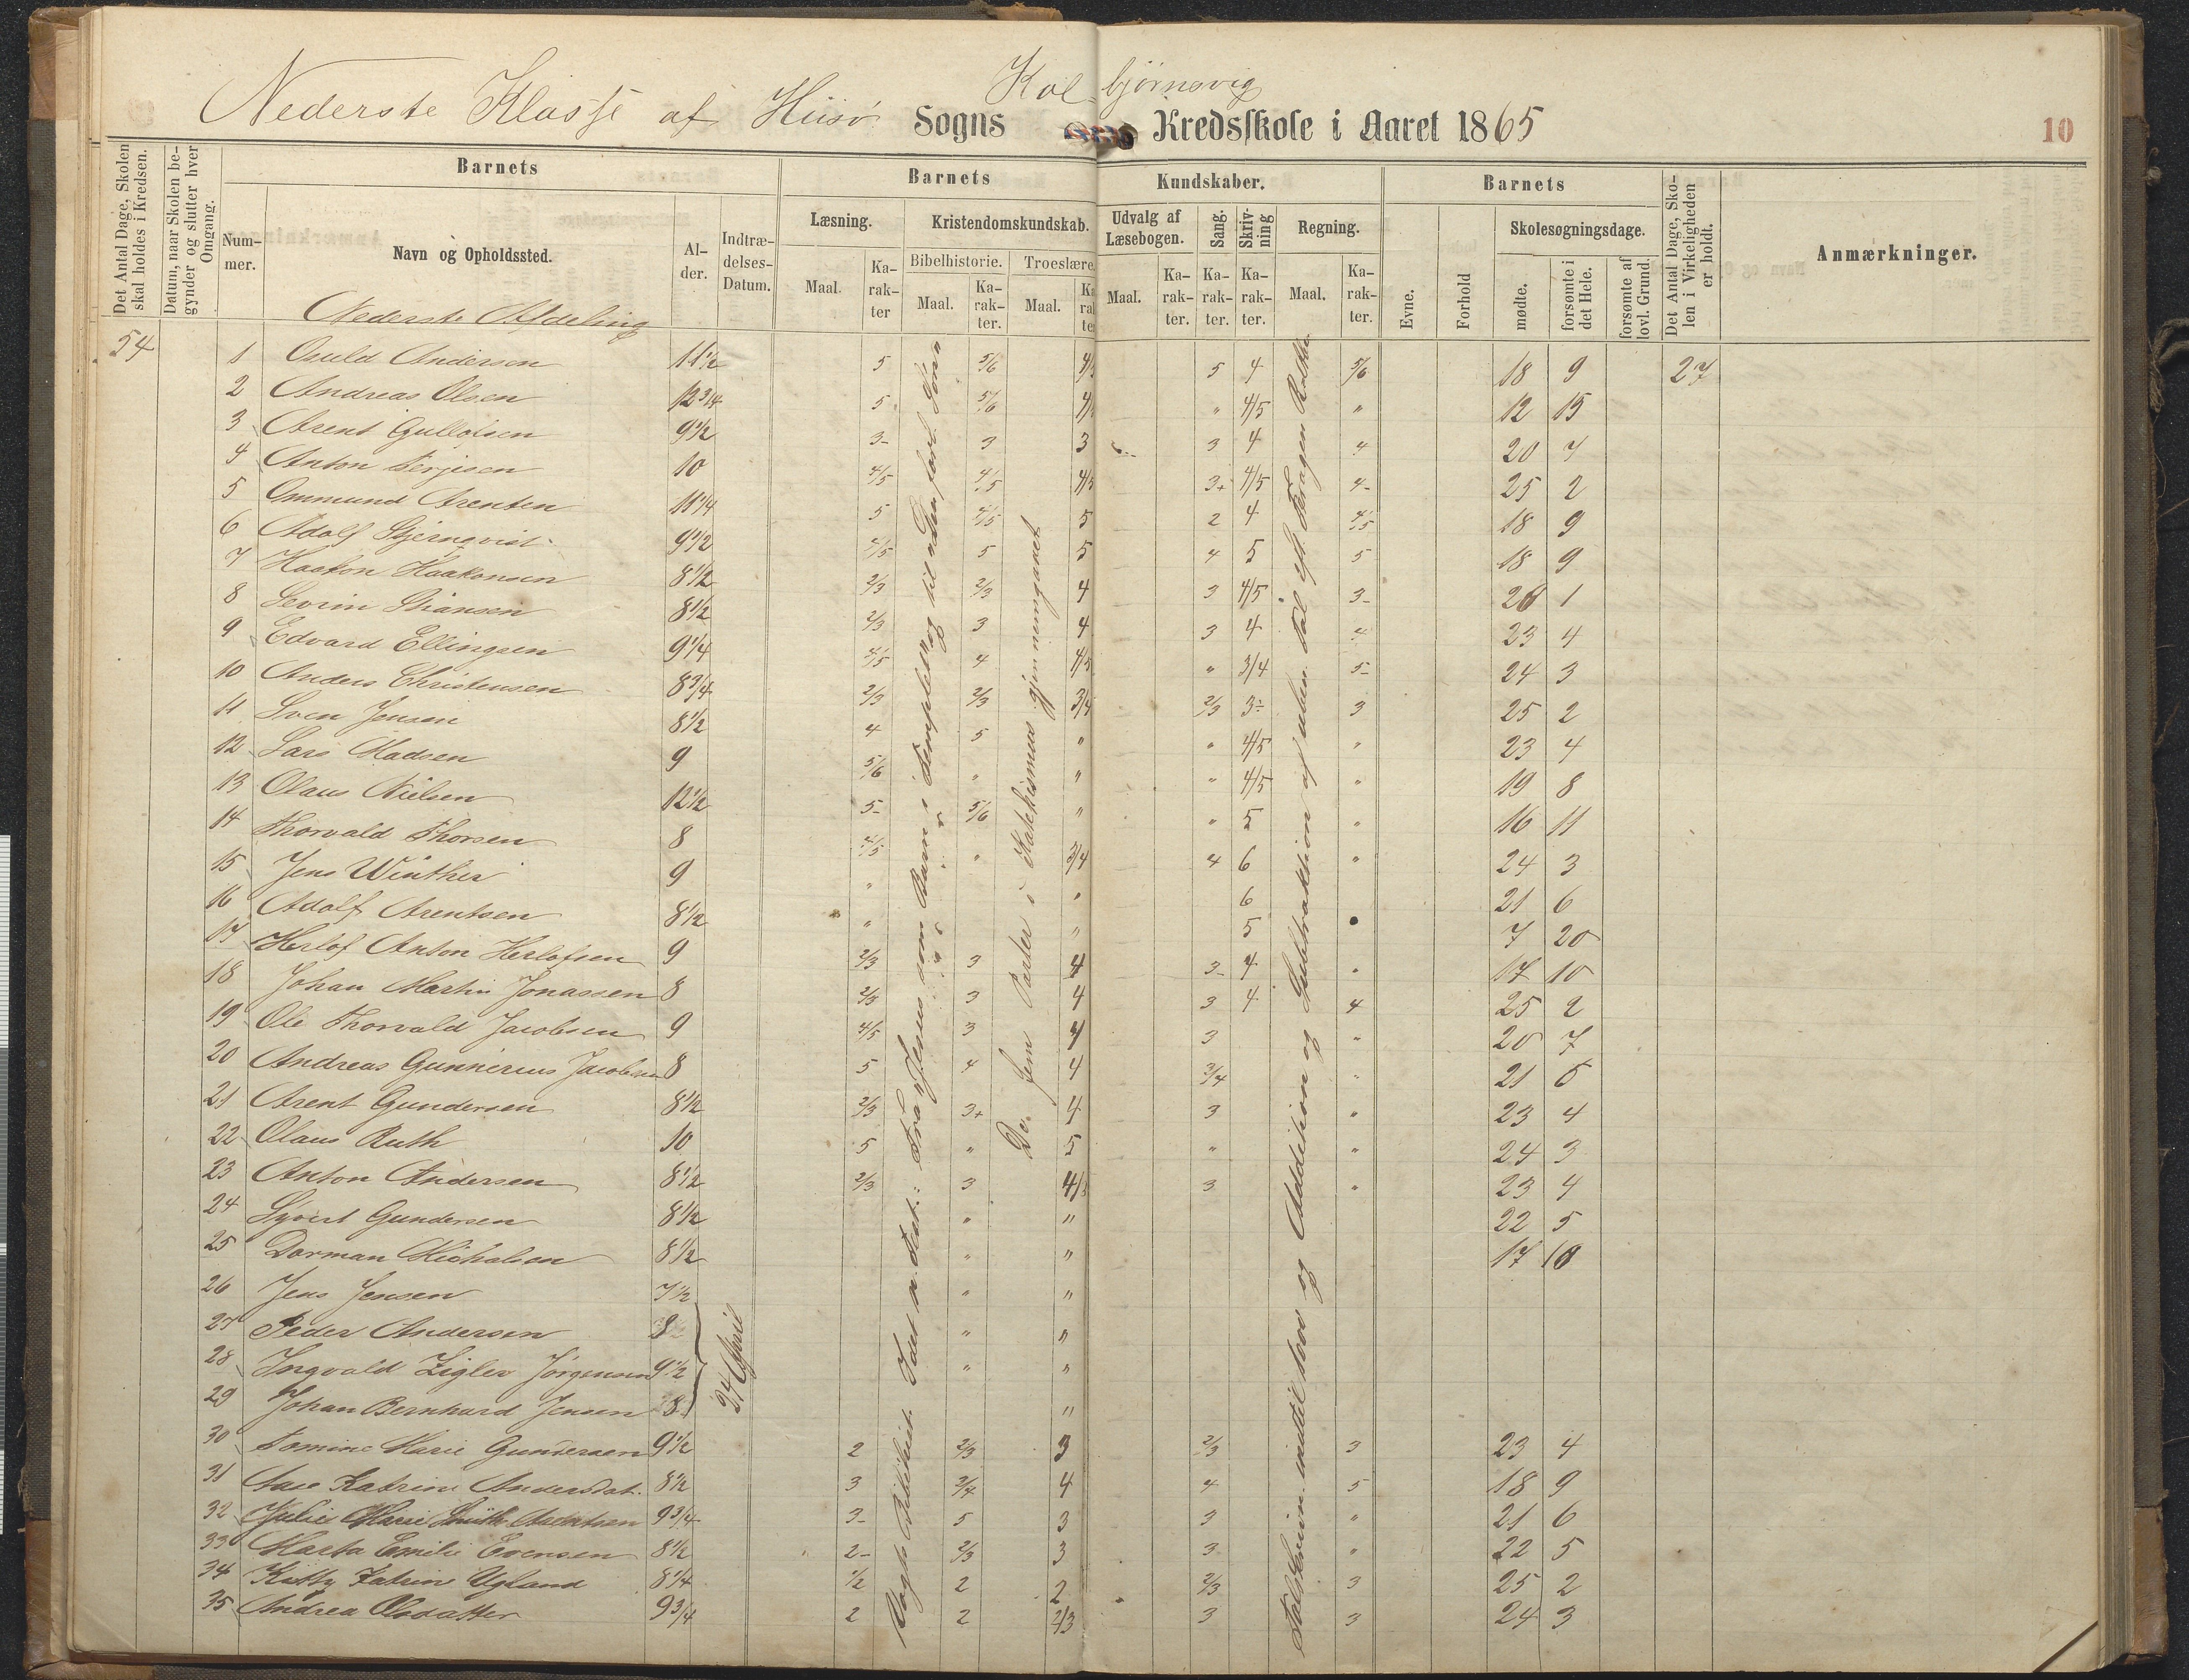 Kol-bjørnsvig
Nederste Klasse af Hiisø Sogns Kredsskole i Aaret 1865
10
Det Antal Dage, Skolen skal holdes i Kredsen.
Datum, naar Skolen begynder og slutter hver Omgang.
Barnets
Nummer.
Navn og Opholdssted.
Alder.
Indtrædelses-Datum.
Barnets Kundskaber.
Læsning.
Maal.
Karakter
Kristendomskundskab.
Bibelhistorie.
Maal.
Karakter.
Troeslære.
Maal.
Karakter
Udvalg af Læsebogen.
Maal.
Karakter.
Sang.
Karakter.
Skrivning
Karakter.
Regning.
Maal.
Karakter.
Barnets
Evne.
Forhold
Skolesøgningsdage.
mødte.
forsømte i det Hele.
forsømte af lovl. Grund.
Det Antal Dage, Skolen i Virkeligheden er holdt.
Anmærkninger.
Nederste Afdeling
54 1 Ouild Andersen 11 1/2 5 5/6 4/5 5 4 5/6 18 9 27
2 Andreas Olsen 12 3/4 5 5/6 4/5 " 4/5 " 12 15
3 Arent Gullofsen 9 1/2 3- 3 3 3 4 4 20 7
4 Anton Terjesen 10 4/5 4/5 4/5 3+ 4/5 4- 25 2
5 Ommund Arentsen 11 1/4 5 4/5 5 2 4 4/5 18 9
6 Adolf Stjernqvist 9 1/2 4/5 5 5 4 5 5 18 9
7 Haakon Haakonsen 8 1/2 2/3 2/3 4 3 4/5 3- 26 1
8 Severin 8 1/2 2/3 3 4 3 4 4 23 4
9 Edvard Ellingsen 9 1/4 4/5 4 4/5 " 3/4 5- 24 3
10 Anders Christensen 8 3/4 2/3 2/3 3/4 2/3 3- 3 25 2
11 Sven Jensen 8 1/2 4 5 " " 4/5 " 23 4
12 Lars Madsen 9 5/6 " " " 4/5 " 19 8
13 Olaus Nielsen 12 1/2 5- 5/6 " " 5 " 16 11
14 Thorvald Thorsen 8 4/5 " 3/4 4 6 " 24 3
15 Jens Winther 9 " " 6 21 6
16 Adolf Arentsen 8 1/2 " " 5 7 20
17 Herlof Anton Herlofsen 9 2/3 3 4 3- 4 " 17 10
18 Johan Martin Jonassen 8 2/3 3 4 3 4 4 25 2
19 Ole Thorvald Jacobsen 9 4/5 3 4 3 " 20 7
20 Andreas Gunnerius Jacobsen 8 5 4 4 3/4 " 21 6
21 Arent Gundersen 8 1/2 2/3 3+ 4 3 " 23 4
22 Olaus Ruth 10 5 " 5 " " 24 3
23 Anton Andersen 8 1/2 2/3 3 4/5 3 " 23 4
24 Syvert Gundersen 8 1/2 " " 22 5
25 Dorman Michalsen 8 1/2 " " 17 10
26 Jens Jensen 7 1/2 " "
27 Peder Andersen 8 " "
28 Ingvald Zigler Jørgensen 9 1/2 " "
29 Johan Bernhard Jensen 8 "
24 April
30 Tomine Marie Gundersen 9 1/2 2 2/3 3 2/3 3 23 4
31 Aase Katrine Andersdat. 8 1/2 3 3/4 4 4 5 18 9
32 Julie Marie Smith 9 3/4 3- 5 3 3 " 21 6
33 Marta Emilie Evensen 8 1/2 2- 2/3 3 3 " 22 5
34 Kitty Katrine Ugland 8 1/4 1/2 2 2 2/3 3 25 2
35 Andrea Olsdatter 9 3/4 2 2 2/3 3 3 24 3
Vogts Bibelhist. Fra "Jesus som Barn i Templet" og til
De fem Parter i Katekismus gjennemgaaet
og Addition og Subtraktion af